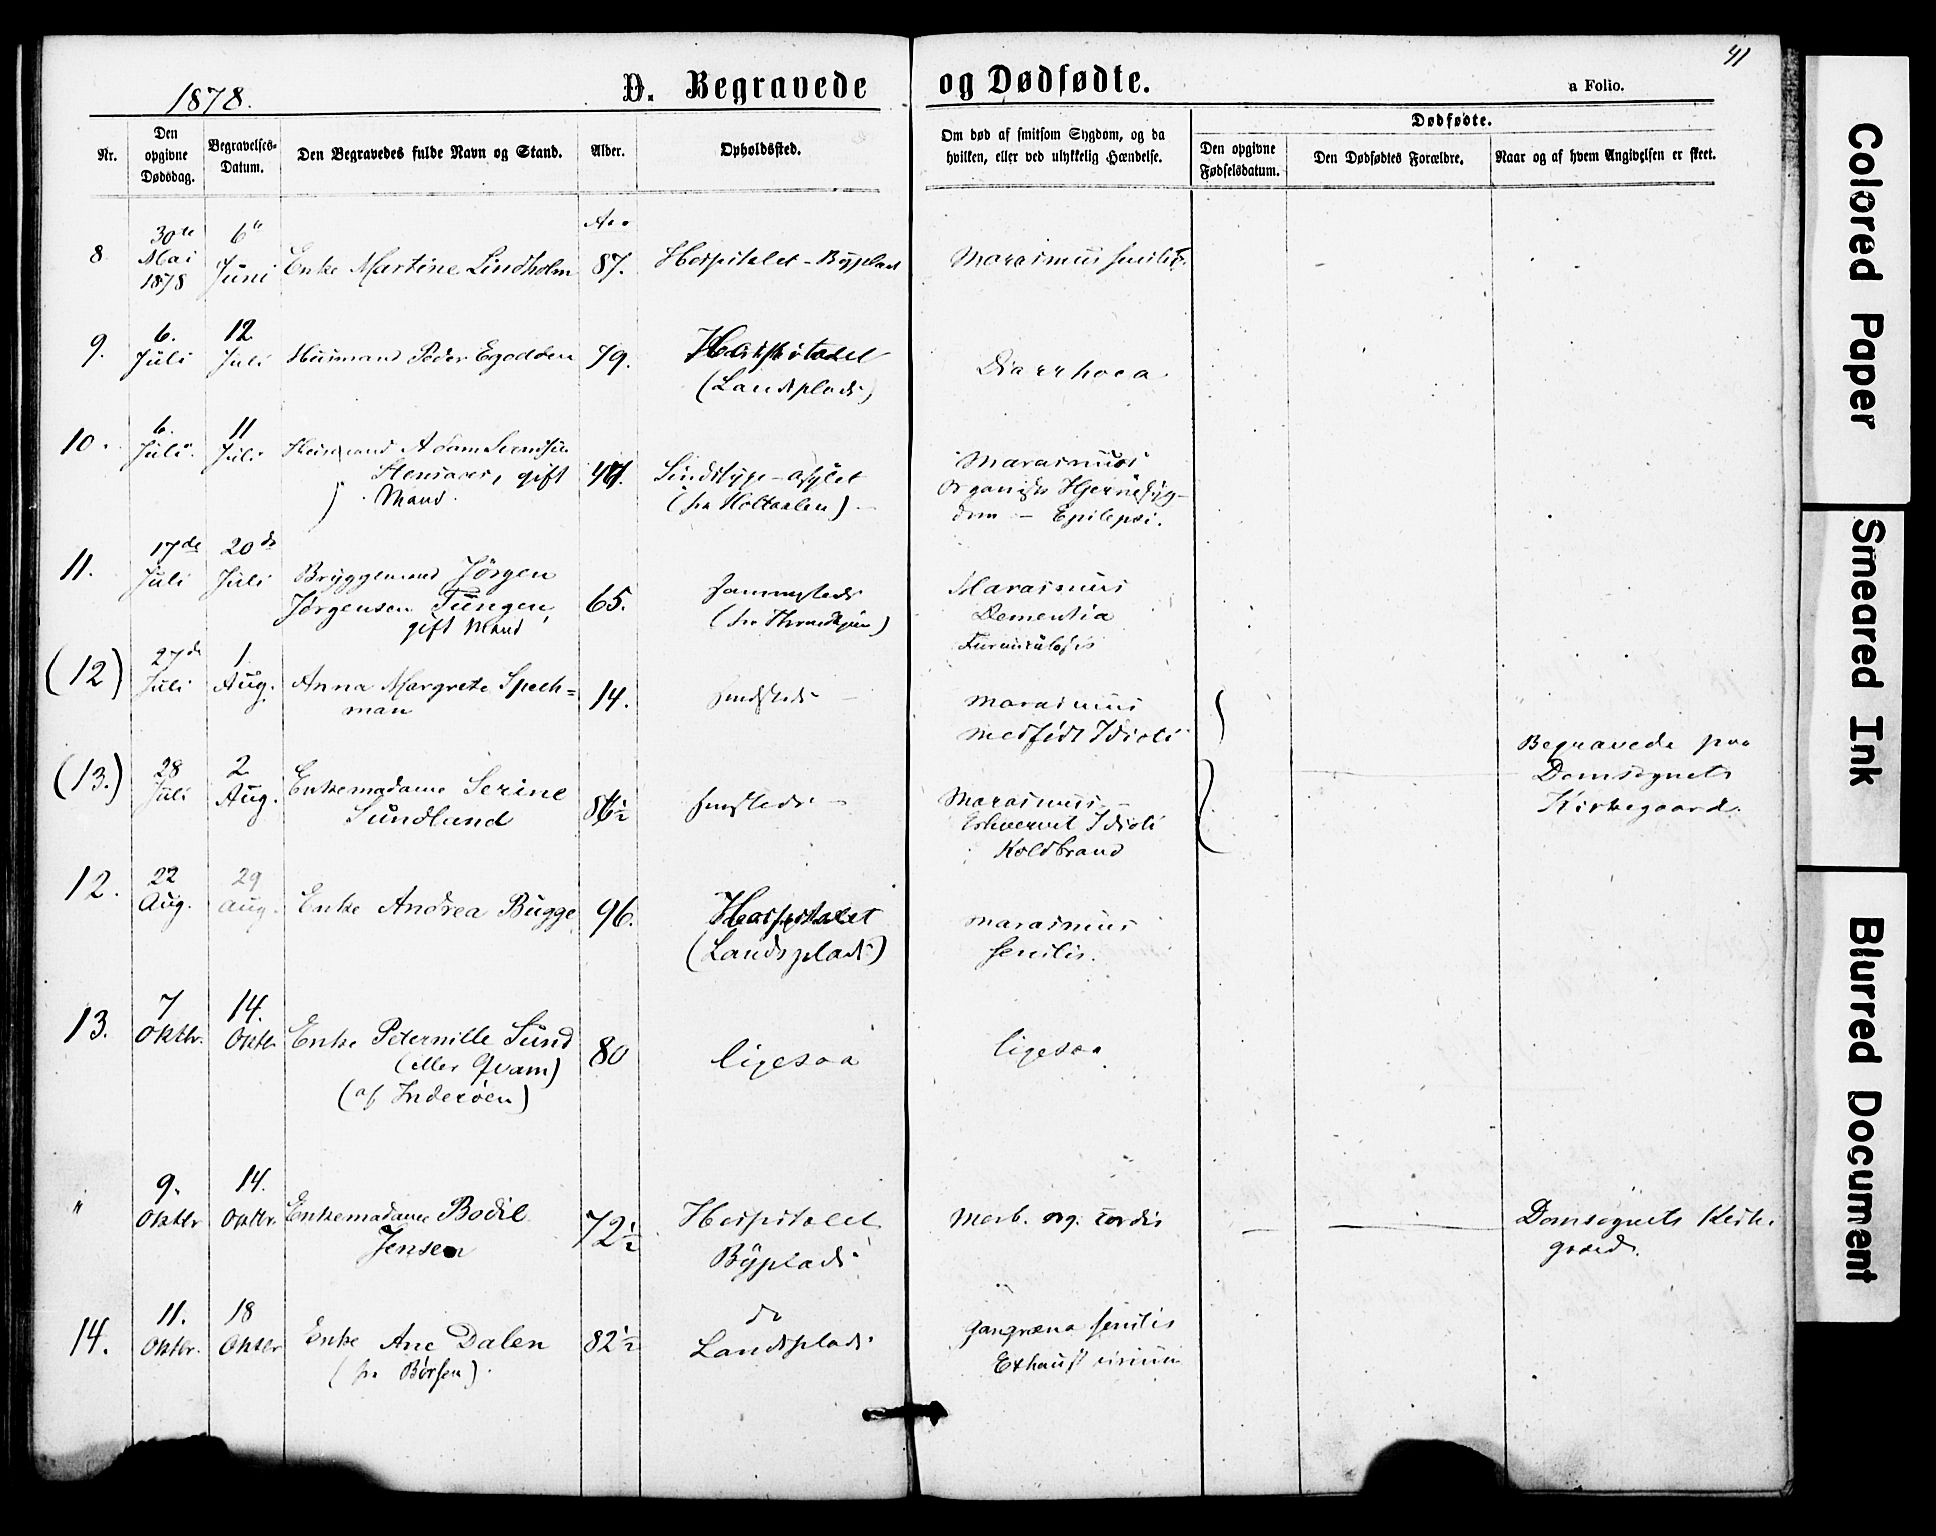 1878.
D. Begravede og Dødfødte.
41
a Folio.
Nr.
Den opgivne Dødsdag.
Begravelses-Datum.
Den Begravedes fulde Navn og Stand.
Alder.
Opholdssted.
Om død af smitsom Sygdom, og da hvilken, eller ved ulykkelig Hændelse.
Dødfødte.
Den opgivne Fødselsdatum.
Den Dødfødtes Forældre.
Naar og af hvem Angivelsen er skeet.
8. 30te Mai 1878 6te Juni Enke Martine Lindholm Aar 87. Hospitalet - Byplads Marasmus senilis.
9. 6. Juli 12 Juli Huusmand Peder Egodden 79. Hospitalet
(Landsplads) Diarrhoea
10. 6. Juli 11 Juli Huusmand Adam
gift Mand. Sindsyge-asylet
(fra Holtaalen) Marasmus
Organisk Hjernesyg-
dom - Epilepsi.
11. 17de Juli 20de Juli Bryggemand Jörgen
Jørgensen Tungen,
gift Mand 65. sammesteds
(fra Throndhjem) Marasmus
Dementia
(12) 27de Juli 1. Aug. Anna Margrete Spech=
man 14. Marasmus
medfødt Idioti
(13.) 28 Juli 2 Aug. Enkemadame Serine
Sundlund Marasmus -
Erhvervet Idioti
Koldbrand
Begravede paa
Domsognets
Kirkegaard.
12. 22 Aug. 29 Aug. Enke Andrea Bugge 96. Hospitalet
(Landsplads) Marasmus
senilis.
13. 7 Oktbr. 14. Oktbr. Enke Peternille Sund
(eller Qvam)
(af Inderöen) 80 ligesaa ligesaa
" 9. Oktbr 14. Oktbr. Enkemadame Bodil
Jensen 72½ Hospitalet
Byplads Morb. org. cordis Domsognets Kirke-
gaard.
14. 11. Oktbr. 18 Oktbr Enke Ane Dalen
(fra Börsen). 82½ do
Landsplads Gangræna senilis
Exhaust virium
Colored Paper
Smeared Ink
Blurred Document